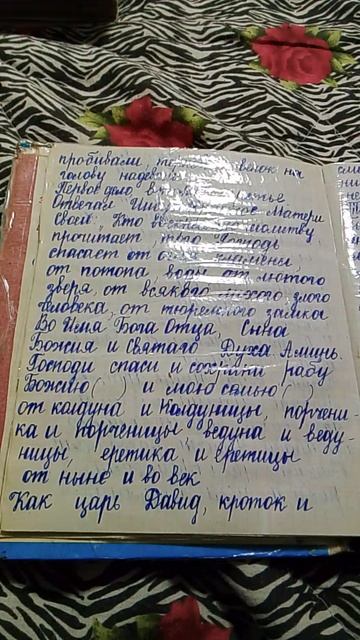 пробивали, венок на
голову надевали
Первое дело, в
Отвечал Матери
Своей: Кто молитву
прочитает, того Господь
спасает от огня, пламени,
от потопа воды, от лютого
зверя, от всякого лихого злого
человека, от тюремного замка
Во Имя Бога Отца, Сына
Божия и Святаго Духа. Аминь.
Господи спаси и сохрани рабу
Божию ( ) и мою семью ( )
от колдуна и колдуницы, порчени
ка и порченицы, ведуна и веду-
ницы, еретика и еретицы
от ныне и во век
Как царь Давид, кроток и